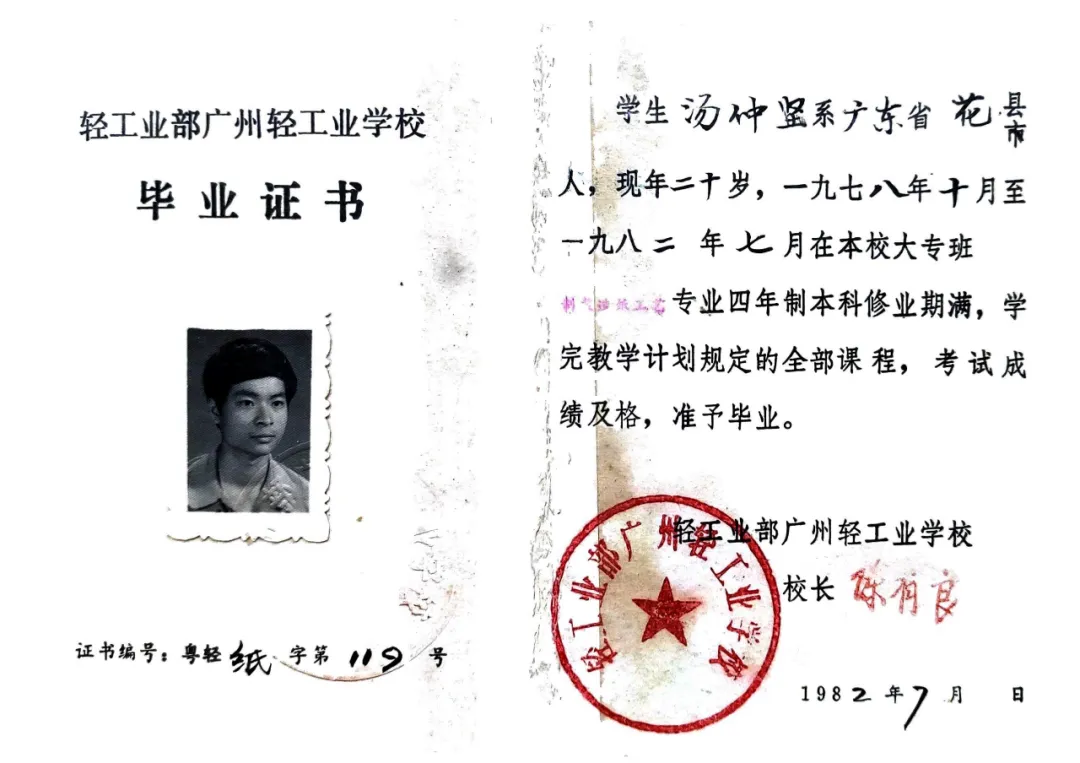 轻工业部广州轻工业学校
毕业证书
证书编号：粤轻纸字第119号
学生汤仲坚系广东省花县
市
人，现年二十岁，一九七八年十月至
一九八二年七月在本校大专班
制浆造纸工艺专业四年制本科修业期满，学
完教学计划规定的全部课程，考试成
绩及格，准予毕业。
轻工业部广州轻工业学校
校长 陈有良
轻工业部广州轻工业学校
1982年7月 日